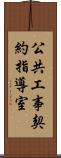 公共工事契
約指導室